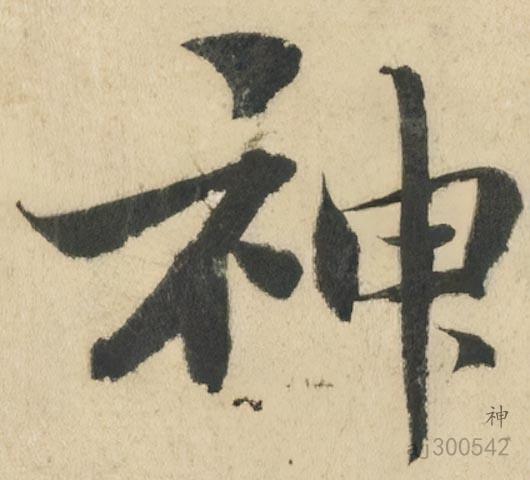 神
神
aj300542